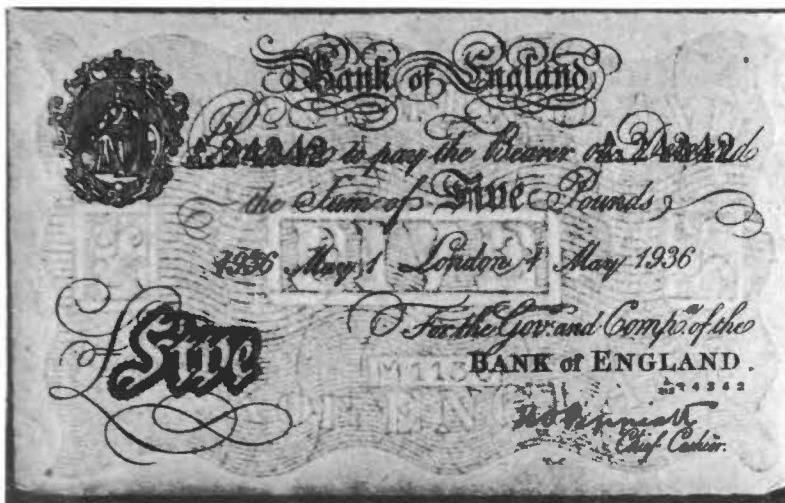 Bank of England
to pay the Bearer on Demand
the Sum of Five Pounds
1936 May 1 London 1 May 1936
For the Gov.r and Comp.a of the
Five
BANK of ENGLAND.
Chief Cashier.